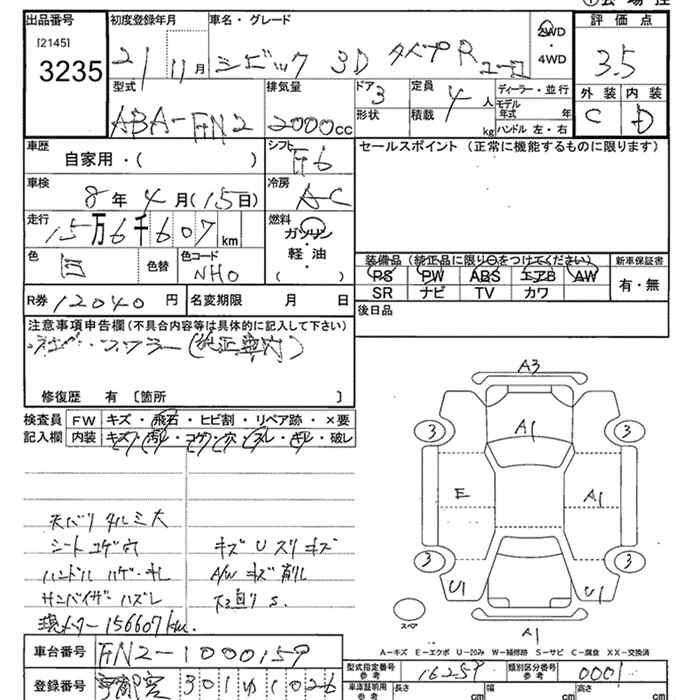 出品番号 初度登録年月 車名・グレード 2WD ・ 4WD 評価点
[2145] 3235
21 11月 シビック 3D タイプR ユーロ 3.5
型式 排気量 ドア 定員 ディーラー・並行 外装 内装
ABA-FN2 2000cc 3 4人 モデル年式 年 C D
形状 積載 kg ハンドル 左・右
車歴 シフト セールスポイント (正常に機能するものに限ります)
自家用・( ) F6
車検 冷房
8年4月(15日) AC
走行 燃料
15万6千607km ガソリン・軽油・( )
色 色替 色コード 装備品(純正品に限り○をつけてください) 新車保証書
白 NHO PS PW ABS エアB AW 有・無
SR ナビ TV カワ
R券 12040円 名変期限 月 日 後日品
注意事項申告欄(不具合内容等は具体的に記入して下さい)
マフラー(純正車内)
修復歴 有 〔箇所 〕
検査員 FW キズ・飛石・ヒビ割・リペア跡・×要
記入欄 内装 キズ・汚レ・コゲ・穴・スレ・キレ・破レ
A3
3 A1 3
E A1
3 3
U1 U1
スペア
A1
天バリ タルミ大
シート コゲ穴 キズ U スリキズ
ハンドル ハゲ・キレ A/W キズ 削レ
サンバイザー ハズレ 下廻り S.
現メーター 156607km
A-キズ E-エクボ U-凹み W-補修跡 S-サビ C-腐食 XX-交換済
車台番号 FN2-1000159
型式指定番号 参考 16259 類別区分番号 参考 0001
登録番号 宇都宮 301 ゆ 1026
車庫証明用 参考 長さ cm 幅 cm 高さ cm